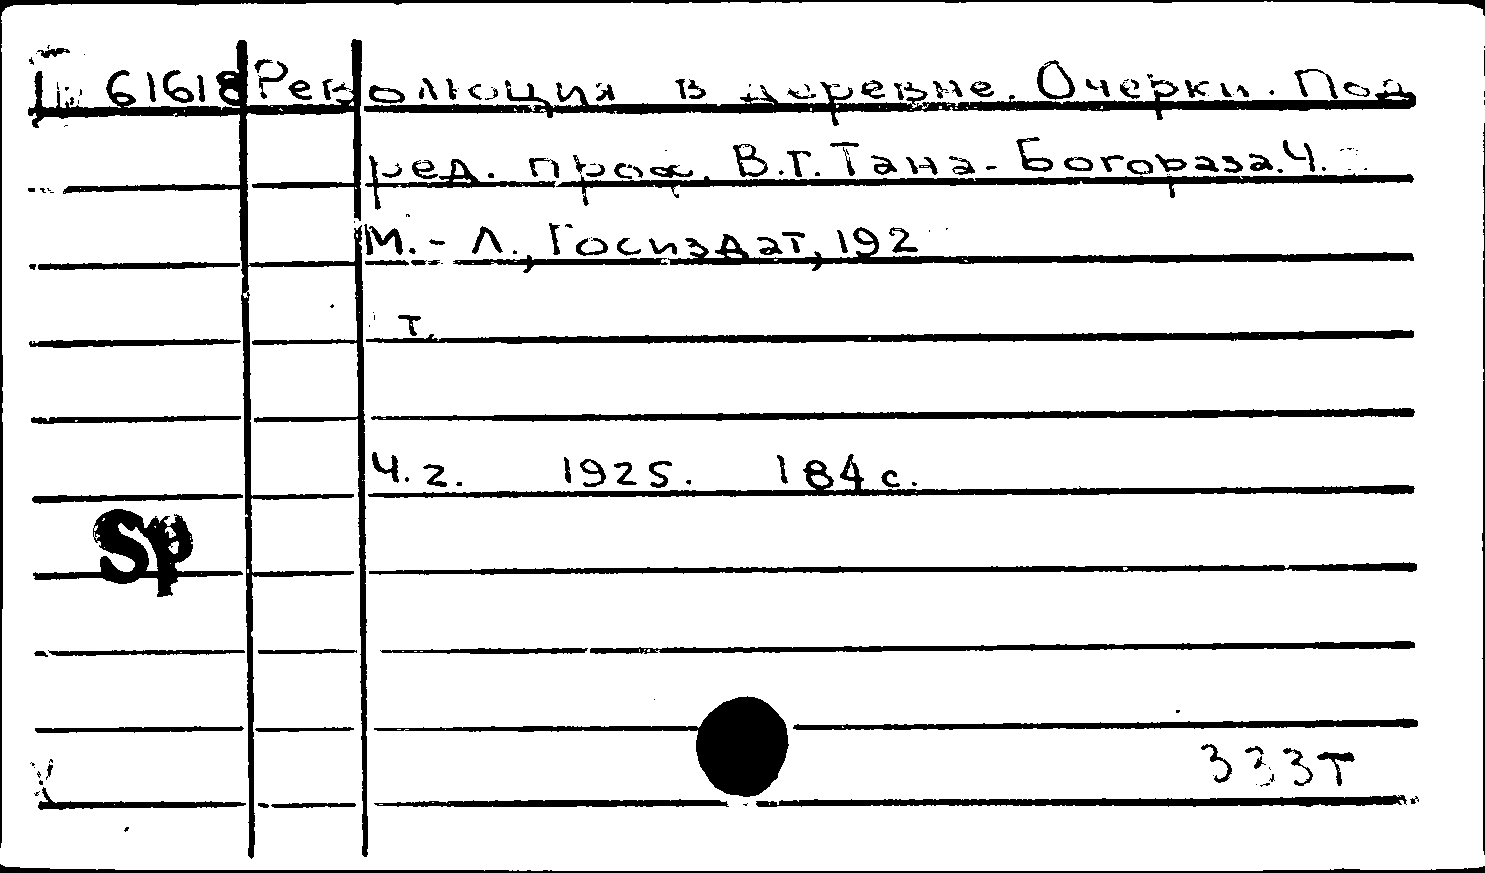 61618 Революция в деревне. Очерки. Под
ред. проф. В.Г. Тана-Богораза. Ч.
М.-Л., Госиздат, 192
т.
Ч.2. 1925. 184 с.
Sp
333т